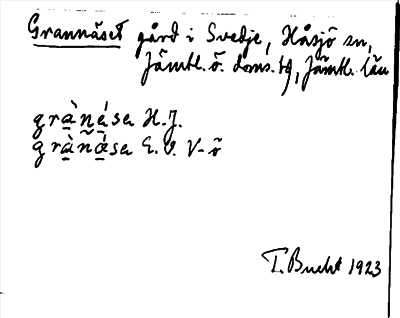 Grannäset gård i Svedje, Håsjö sn,
Jämtl. ö. doms. tg, Jämtl. län
grànása H.J.
grànása E.O. V-ö
T. Bucht 1923